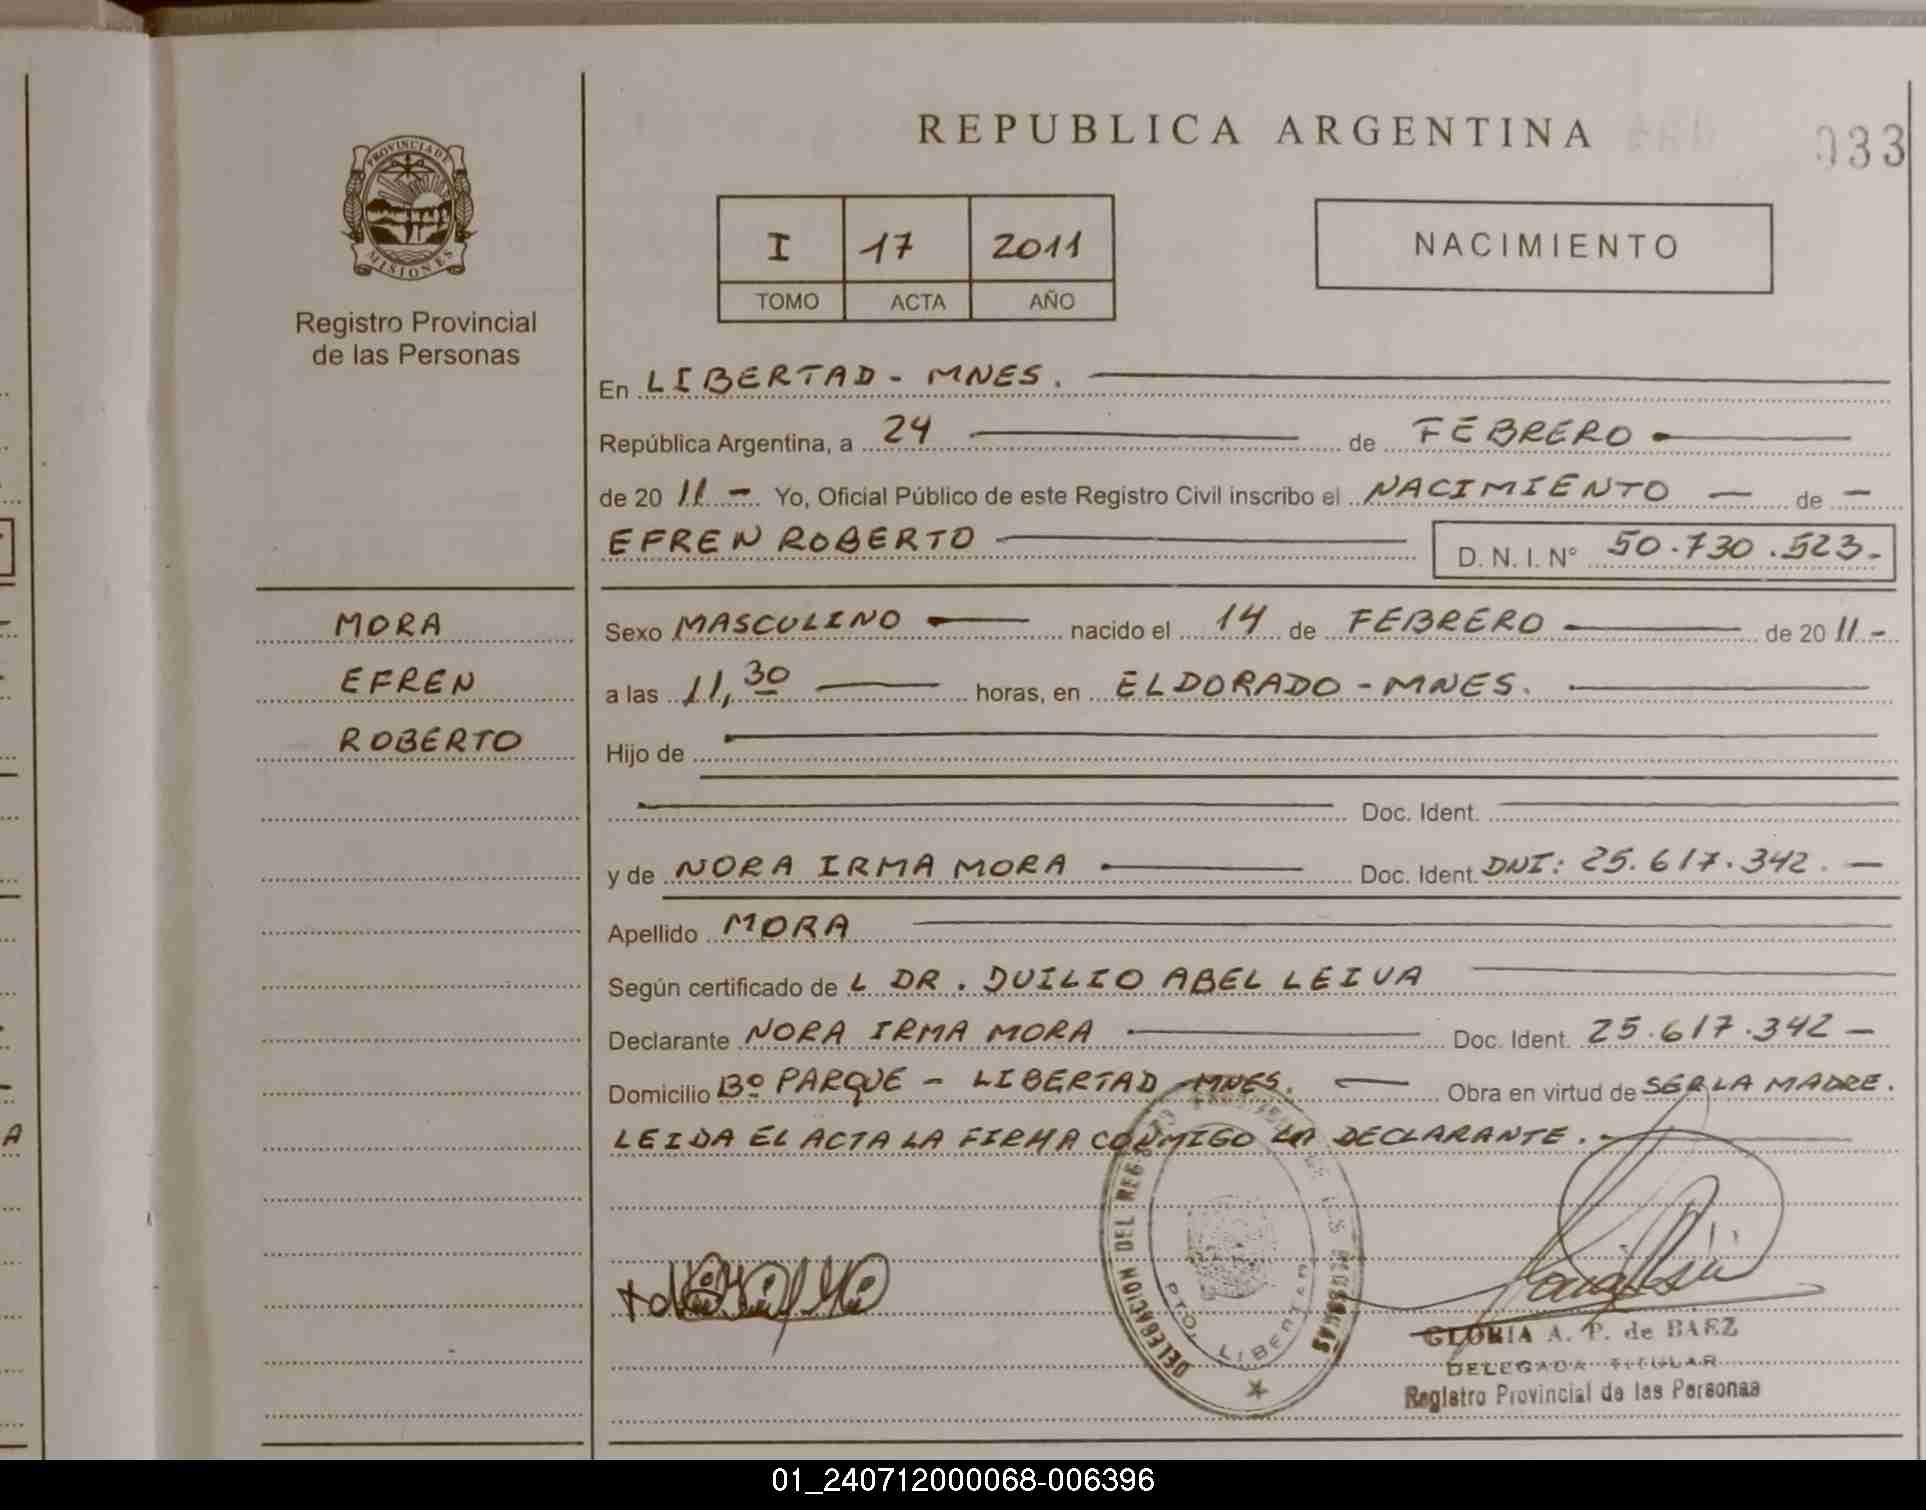 REPUBLICA ARGENTINA
033
PROVINCIA DE
MISIONES
Registro Provincial
de las Personas
I 17 2011
TOMO ACTA AÑO
NACIMIENTO
En LIBERTAD - MNES.
República Argentina, a 24 de FEBRERO
de 20 11 - Yo, Oficial Público de este Registro Civil inscribo el NACIMIENTO - de -
EFREN ROBERTO D. N. I. Nº 50.730.523-
MORA
EFREN
ROBERTO
Sexo MASCULINO nacido el 14 de FEBRERO de 20 11 -
a las 11,30 horas, en ELDORADO - MNES.
Hijo de
Doc. Ident.
y de NORA IRMA MORA Doc. Ident. DNI: 25.617.342. -
Apellido MORA
Según certificado de L DR. DUILIO ABEL LEIVA
Declarante NORA IRMA MORA Doc. Ident. 25.617.342 -
Domicilio Bº PARQUE - LIBERTAD - MNES. - Obra en virtud de SER LA MADRE.
LEIDA EL ACTA LA FIRMA CONMIGO LA DECLARANTE.
A
DELEGACION DEL REG
PERSONAS
PTO. LIBERTAD
GLORIA A. P. de BAEZ
DELEGADA TITULAR
Registro Provincial de las Personas
01_240712000068-006396